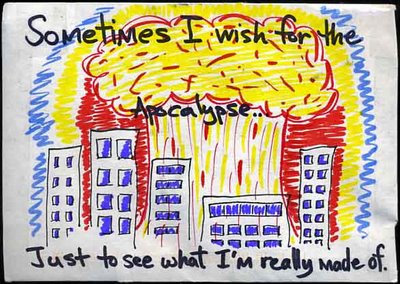 Sometimes I wish for the
Apocalypse..
Just to see what I'm really made of.